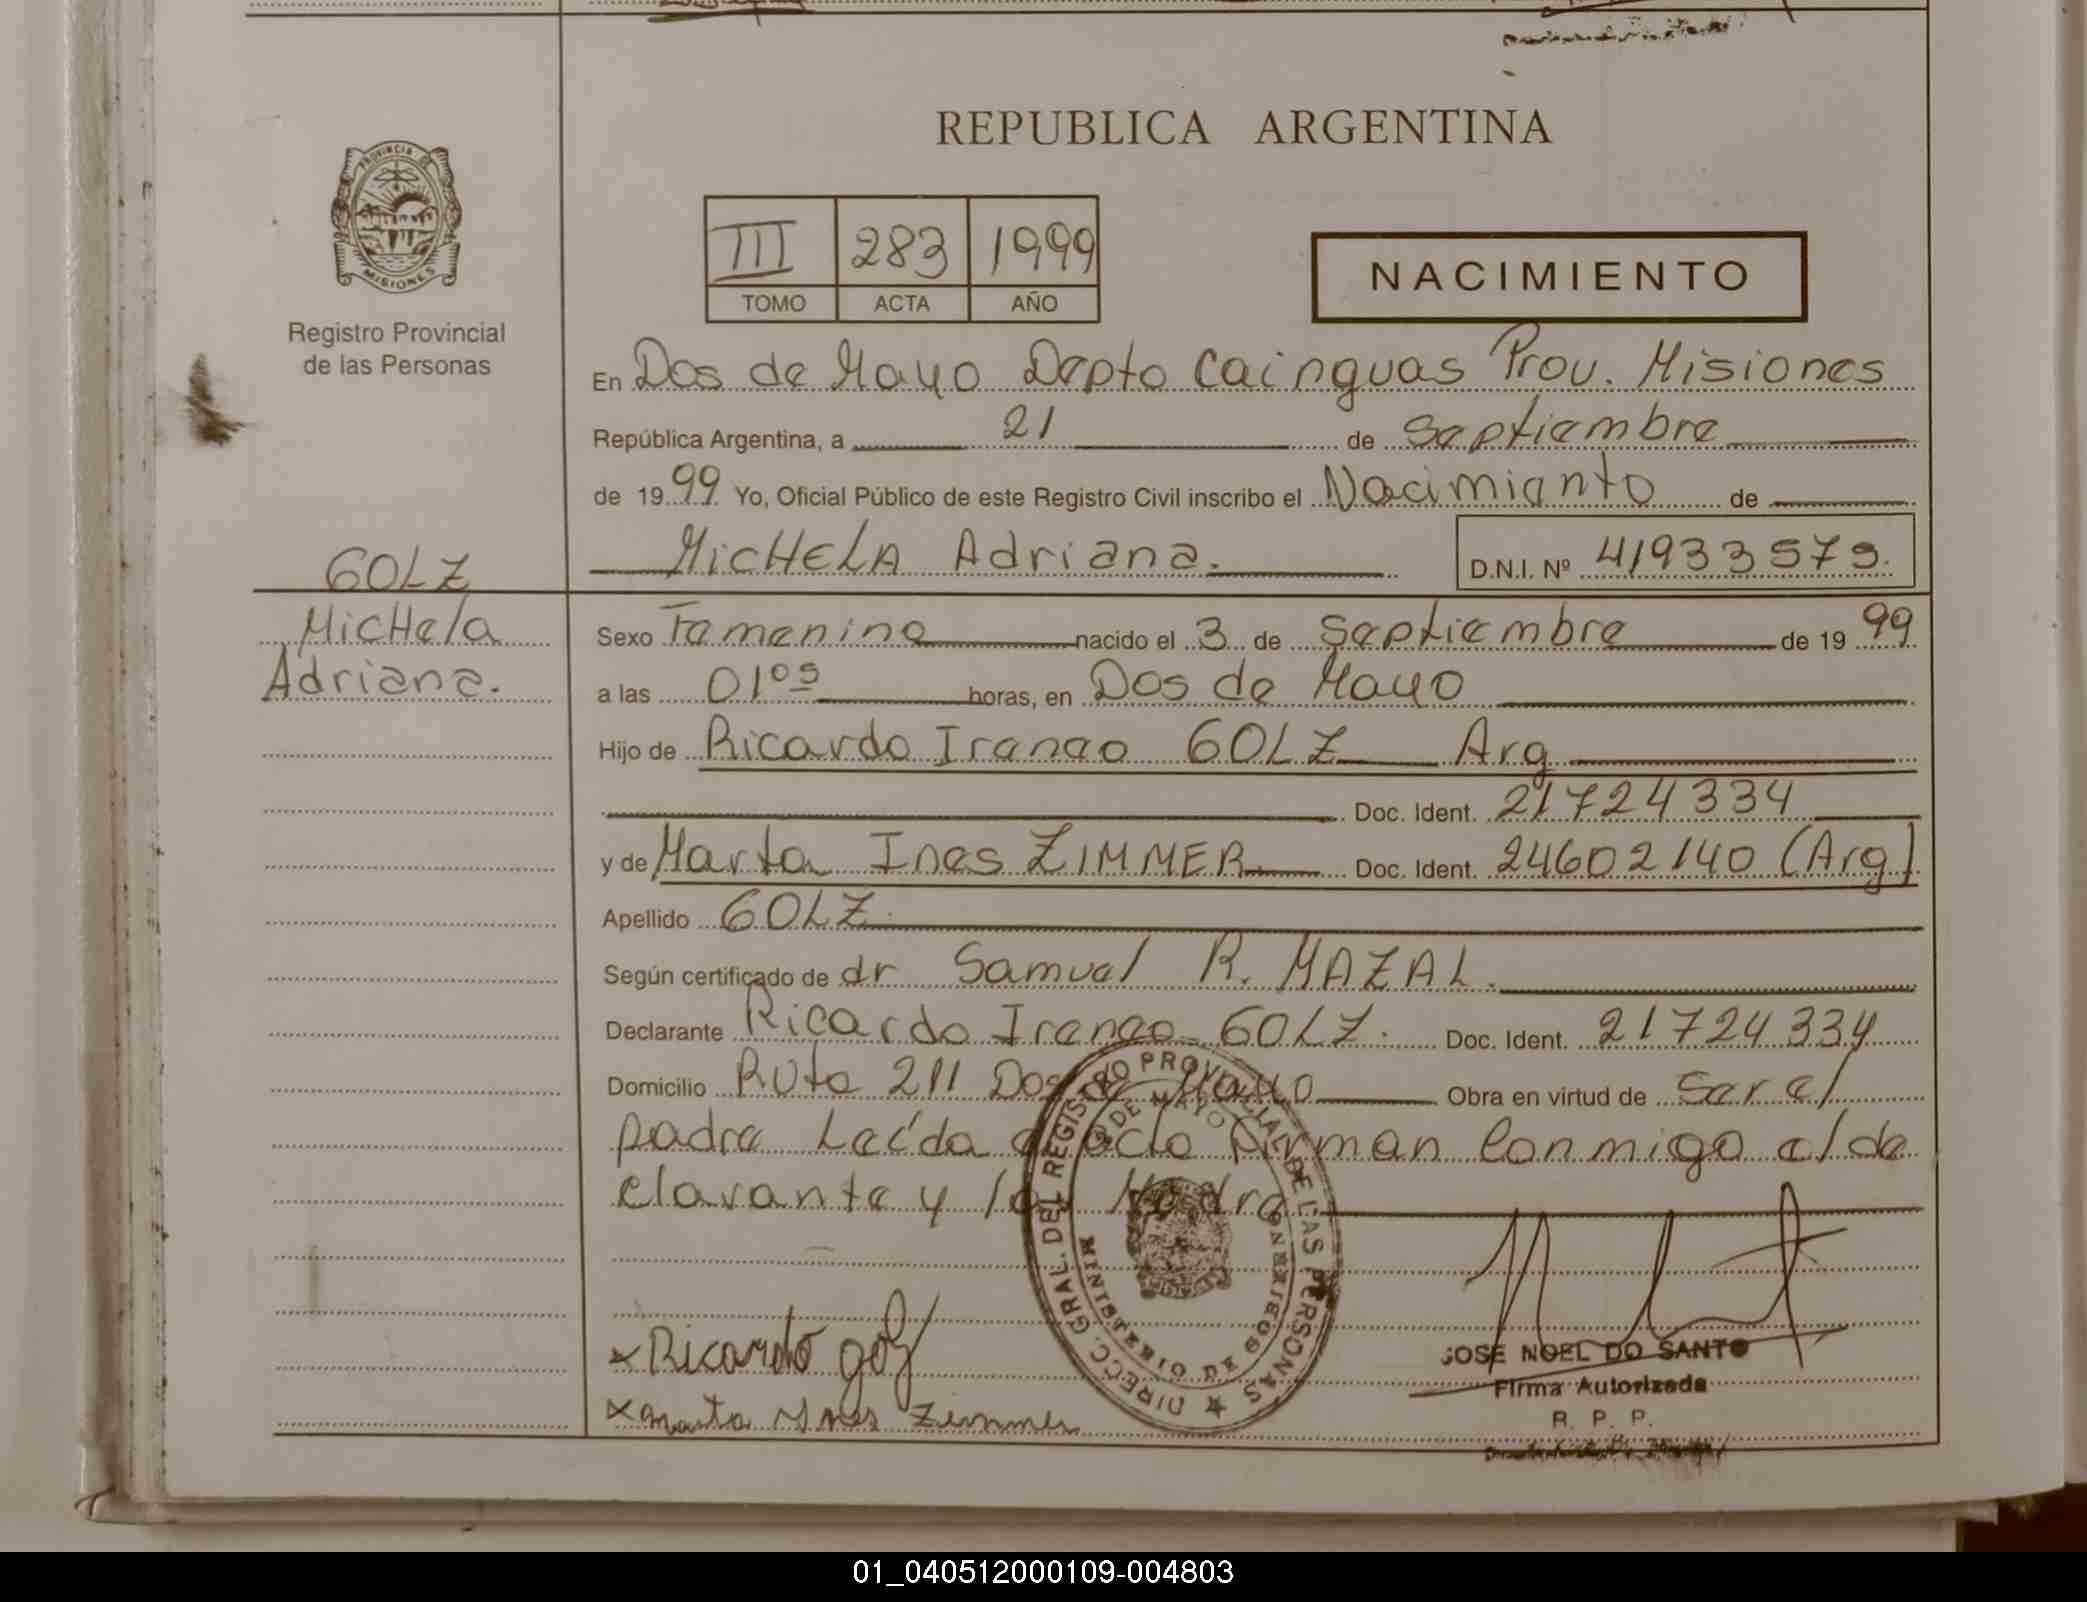 REPUBLICA ARGENTINA
PROVINCIA DE MISIONES
Registro Provincial
de las Personas
III 283 1999
TOMO ACTA AÑO
NACIMIENTO
En Dos de Mayo Depto Cainguas Prov. Misiones
República Argentina, a 21 de Septiembre
de 1999 Yo, Oficial Público de este Registro Civil inscribo el Nacimiento de
MicHELA Adriana.
D.N.I. Nº 41933579.
GOLZ
MicHela
Adriana.
Sexo Femenino nacido el 3 de Septiembre de 1999
a las 01⁰⁵ horas, en Dos de Mayo
Hijo de Ricardo Ireneo GOLZ Arg
Doc. Ident. 21724334
y de Marta Ines ZIMMER Doc. Ident. 24602140 (Arg)
Apellido GOLZ
Según certificado de dr Samuel R. MAZAL.
Declarante Ricardo Ireneo GOLZ. Doc. Ident. 21724334
Domicilio Ruta 211 Dos de Mayo Obra en virtud de Ser el
padre Leída el acta firman Conmigo el de
clarante y la Madre
DIRECC. GRAL. DEL REGISTRO PROVINCIAL DE LAS PERSONAS
DE MAYO
MINISTERIO DE GOBIERNO
x Ricardo golz
x Marta Ines Zimmer
JOSE NOEL DO SANTO
Firma Autorizada
R. P. P.
01_040512000109-004803